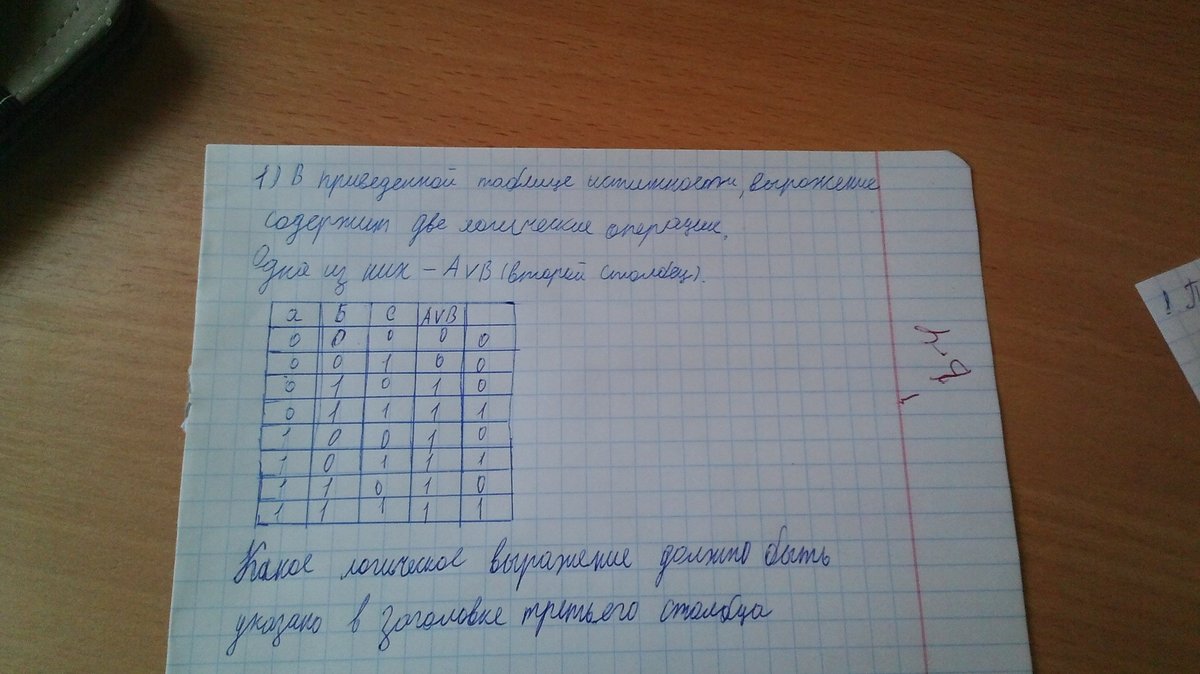 1) В приведенной таблице истинности, выражение
содержит две логические операции.
Одна из них - A∨B (второй столбец).
а Б С A∨B
0 0 0 0 0
0 0 1 0 0
0 1 0 1 0
0 1 1 1 1
1 0 0 1 0
1 0 1 1 1
1 1 0 1 0
1 1 1 1 1
Какое логическое выражение должно быть
указано в заголовке третьего столбца